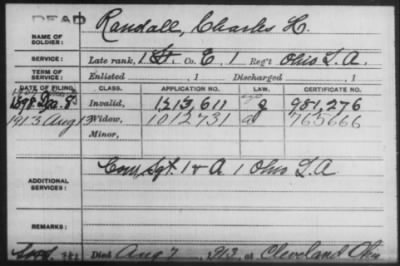 DEAD
NAME OF SOLDIER: Randall, Charles H.
SERVICE: Late rank, 1 Lt. Co. E, 1 Reg't Ohio L. A.
TERM OF SERVICE: Enlisted , 1 Discharged , 1
DATE OF FILING. CLASS. APPLICATION NO. LAW. CERTIFICATE NO.
1898 Dec. 8 Invalid, 1213,611 g 981,276
1913 Aug 13 Widow, 1012731 a 765666
Minor,
ADDITIONAL SERVICES: Com Sgt. 1 & A 1 Ohio L A
REMARKS:
Died Aug 7, 1913, at Cleveland Ohio